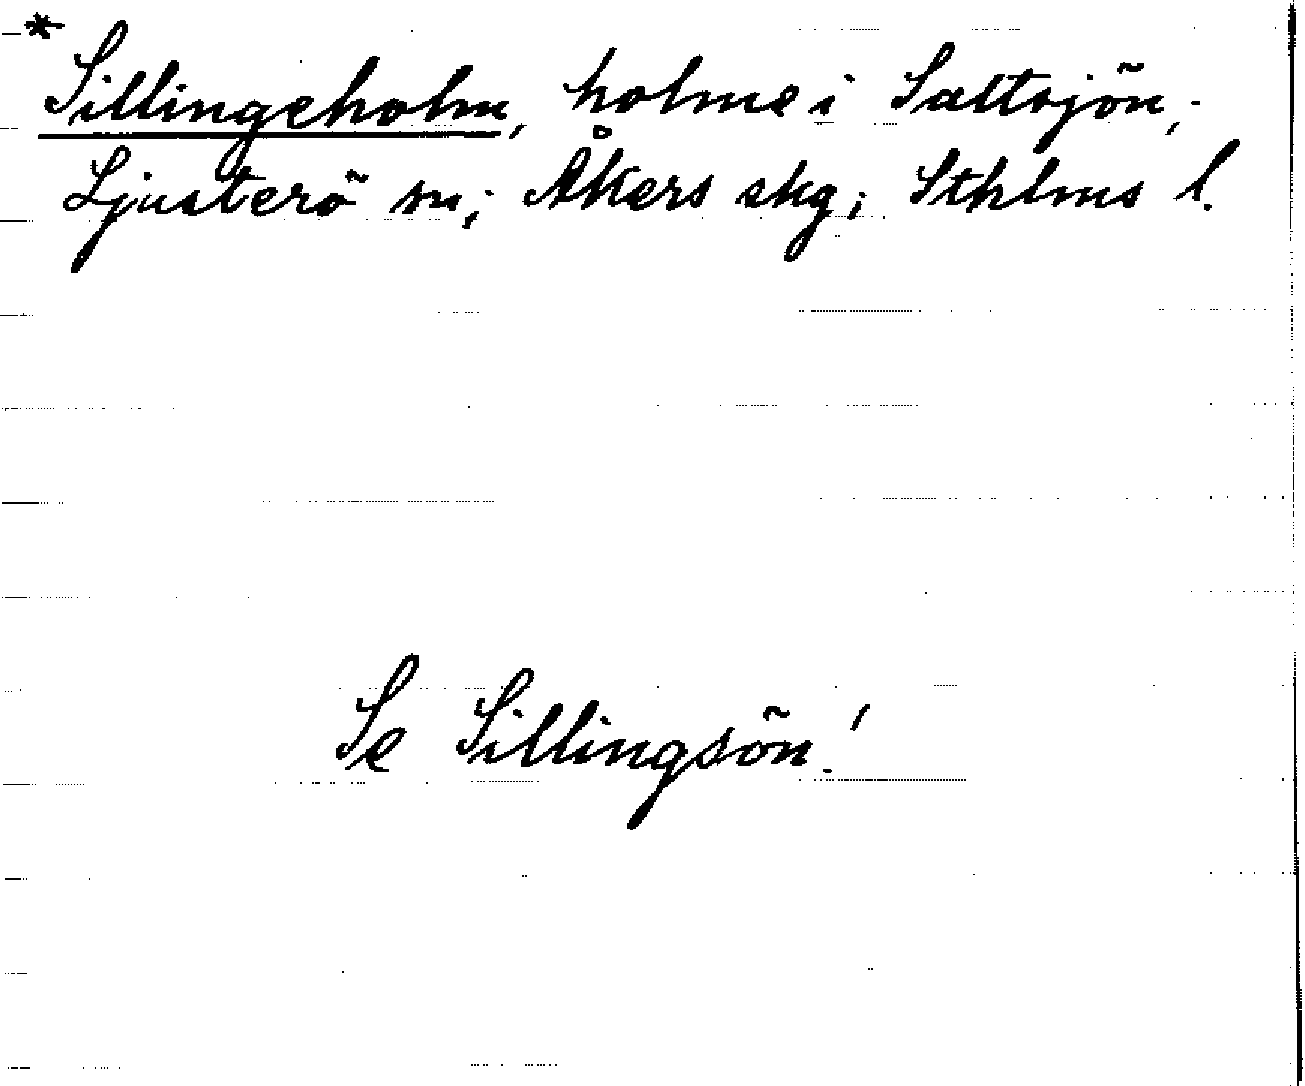 *Sillingeholm, holme i Saltsjön,
Ljusterö sn; Åkers skg; Sthlms l.
Se Sillingsön!